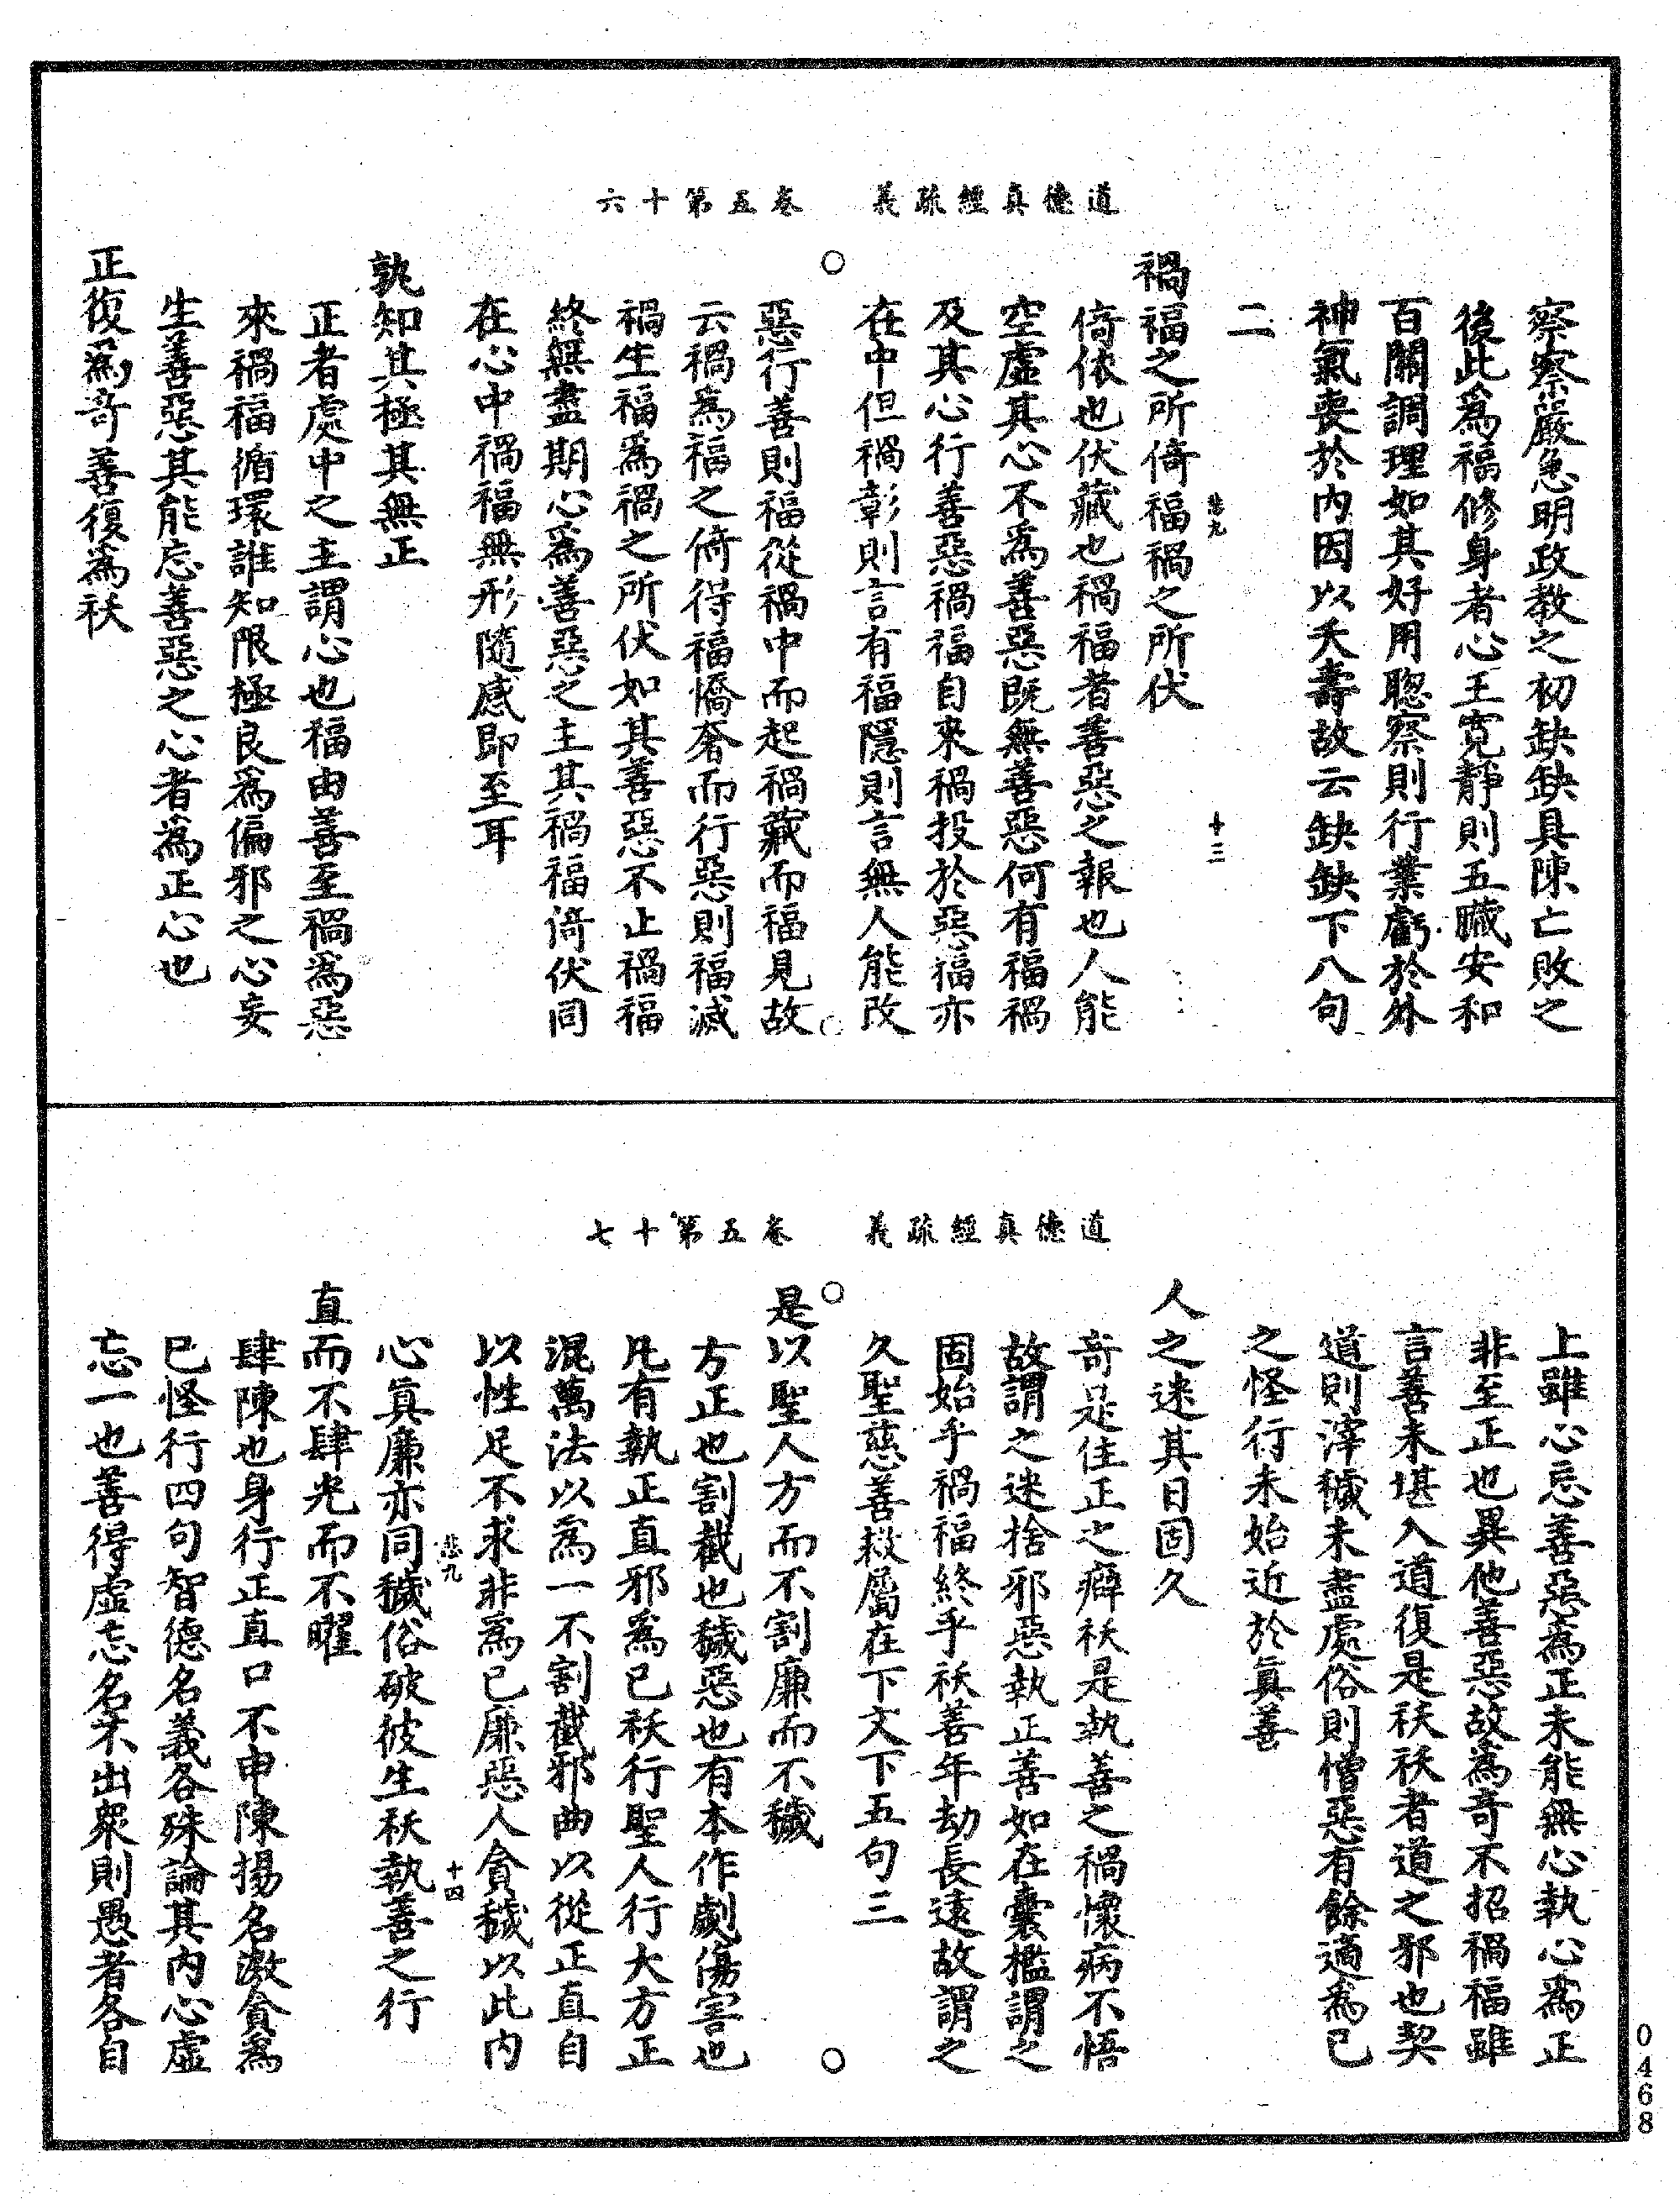 道德真經疏義　卷五第十六
察察嚴急明政教之初缺缺具陳亡敗之
後此爲福修身者心王寬靜則五臟安和
百關調理如其好用聰察則行業虧於外
神氣喪於内因以夭壽故云缺缺下八句
二
悲九　十三
禍福之所倚福禍之所伏
倚依也伏藏也禍福者善惡之報也人能
空虛其心不爲善惡既無善惡何有福禍
及其心行善惡禍福自來禍投於惡福亦
在中但禍彰則言有福隱則言無人能改
惡行善則福從禍中而起禍藏而福見故
云禍爲福之倚得福憍奢而行惡則福滅
禍生福爲禍之所伏如其善惡不止禍福
終無盡期心爲善惡之主其禍福倚伏同
在心中禍福無形隨感即至耳
孰知其極其無正
正者處中之主謂心也福由善至禍爲惡
來禍福循環誰知限極良爲偏邪之心妄
生善惡其能忘善惡之心者爲正心也
正復爲奇善復爲祅
道德真經疏義　卷五第十七
上雖心忘善惡爲正未能無心執心爲正
非至正也異他善惡故爲奇不招禍福雖
言善未堪入道復是祅祅者道之邪也契
道則滓穢未盡處俗則憎惡有餘適爲己
之怪行未始近於眞善
人之迷其日固久
奇是住正之癖祅是執善之禍懷病不悟
故謂之迷捨邪惡執正善如在囊檻謂之
固始乎禍福終乎祅善年劫長遠故謂之
久聖慈善救屬在下文下五句三
是以聖人方而不割廉而不穢
方正也割截也穢惡也有本作劌傷害也
凡有執正直邪爲已祅行聖人行大方正
混萬法以爲一不割截邪曲以從正直自
以性足不求非爲已廉惡人貪穢以此内
悲九　十四
心眞廉亦同穢俗破彼生祅執善之行
直而不肆光而不曜
肆陳也身行正直口不申陳揚名激貪爲
已怪行四句智德名義各殊論其内心虛
忘一也善得虛忘名不出衆則愚者各自
0468